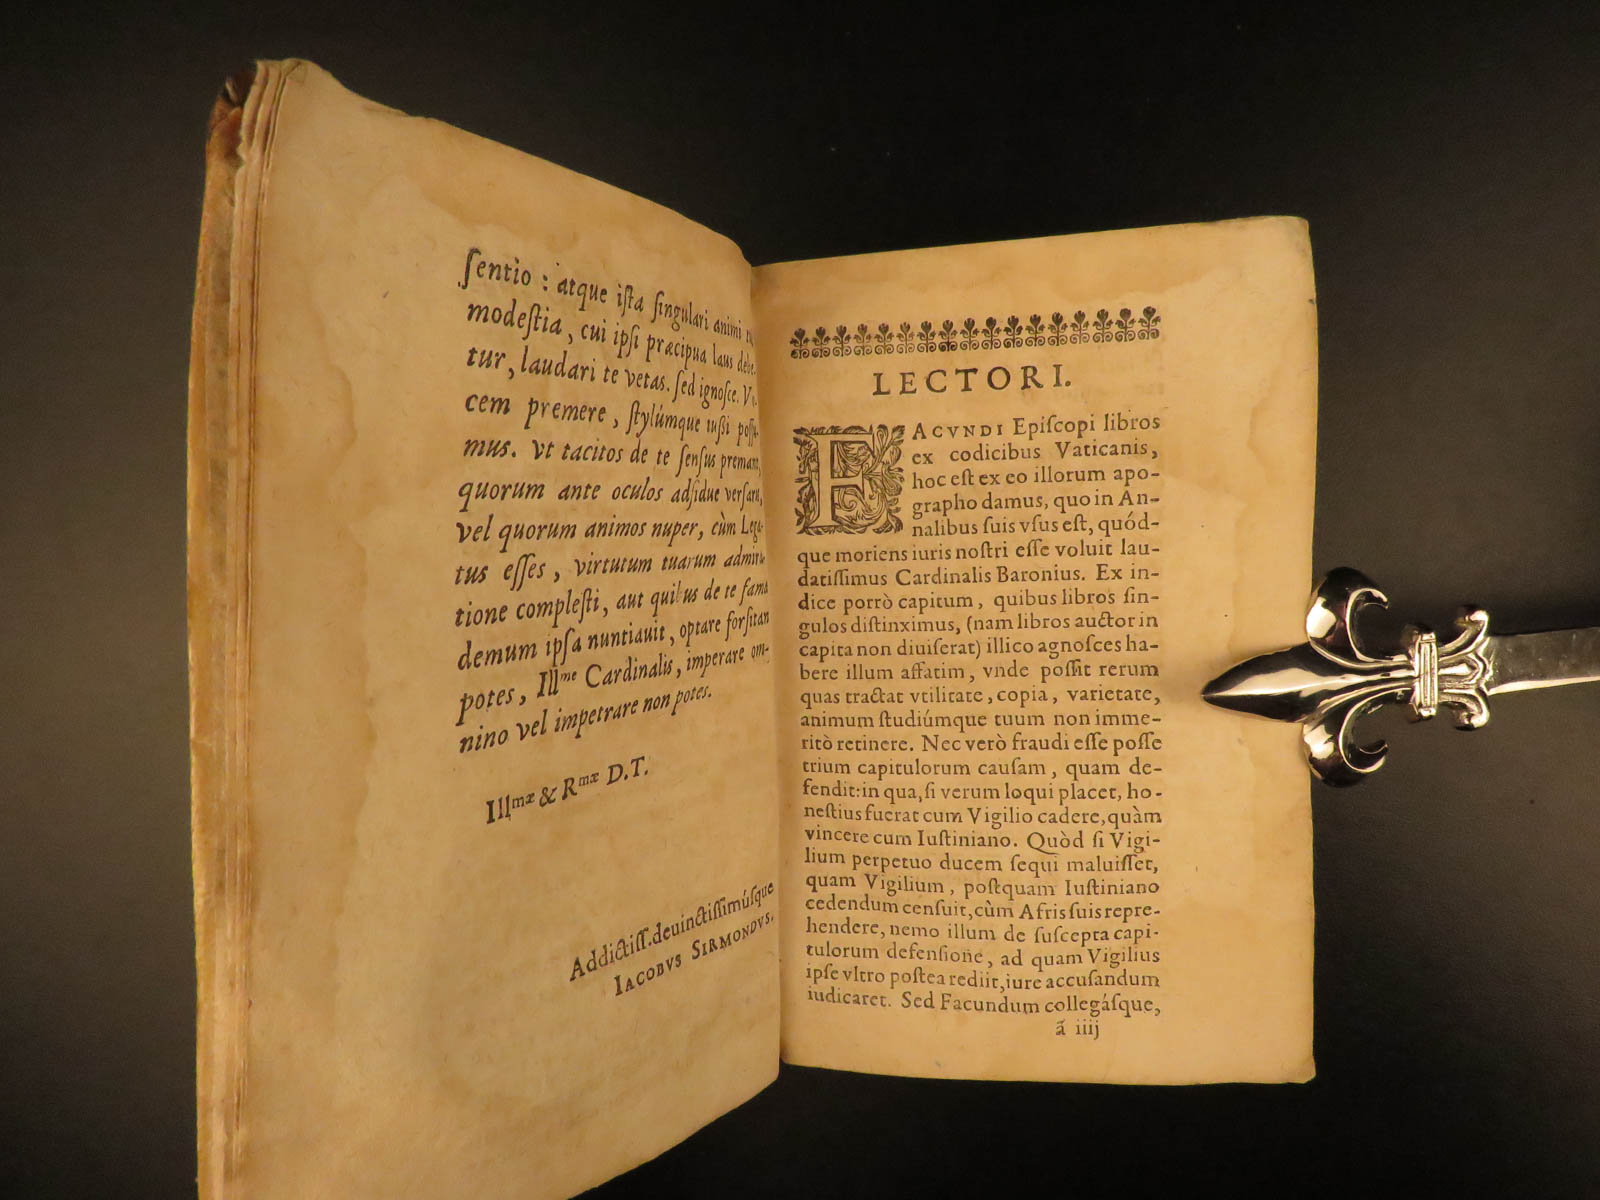 ſentio : atque iſta ſingulari animi
modeſtia, cui ipſi præcipua laus debe-
tur, laudari te vetas. ſed ignoſce. Vo-
cem premere, ſtylúmque iuſſi poſſu-
mus. vt tacitos de te ſenſus premant,
quorum ante oculos adſidue verſaris,
vel quorum animos nuper, cùm Lega-
tus eſſes, virtutum tuarum admira-
tione compleſti, aut quibus de te fama
demum ipſa nuntiauit, optare forſitan
potes, Illᵐᵉ Cardinalis, imperare om-
nino vel impetrare non potes.
Illᵐᵃᵉ & Rᵐᵃᵉ D.T.
Addictiſſ. deuinctiſſimúſque
IACOBVS SIRMONDVS.
LECTORI.
FACVNDI Epiſcopi libros
ex codicibus Vaticanis,
hoc eſt ex eo illorum apo-
grapho damus, quo in An-
nalibus ſuis vſus eſt, quód-
que moriens iuris noſtri eſſe voluit lau-
datiſſimus Cardinalis Baronius. Ex in-
dice porrò capitum, quibus libros ſin-
gulos diſtinximus, (nam libros auctor in
capita non diuiſerat) illico agnoſces ha-
bere illum affatim, vnde poſſit rerum
quas tractat vtilitate, copia, varietate,
animum ſtudiúmque tuum non imme-
ritò retinere. Nec verò fraudi eſſe poſſe
trium capitulorum cauſam, quam de-
fendit: in qua, ſi verum loqui placet, ho-
neſtius fuerat cum Vigilio cadere, quàm
vincere cum Iuſtiniano. Quòd ſi Vigi-
lium perpetuo ducem ſequi maluiſſet,
quam Vigilium, poſtquam Iuſtiniano
cedendum cenſuit, cùm Afris ſuis repre-
hendere, nemo illum de ſuſcepta capi-
tulorum defenſione, ad quam Vigilius
ipſe vltro poſtea rediit, iure accuſandum
iudicaret. Sed Facundum collegáſque,
ã iiij